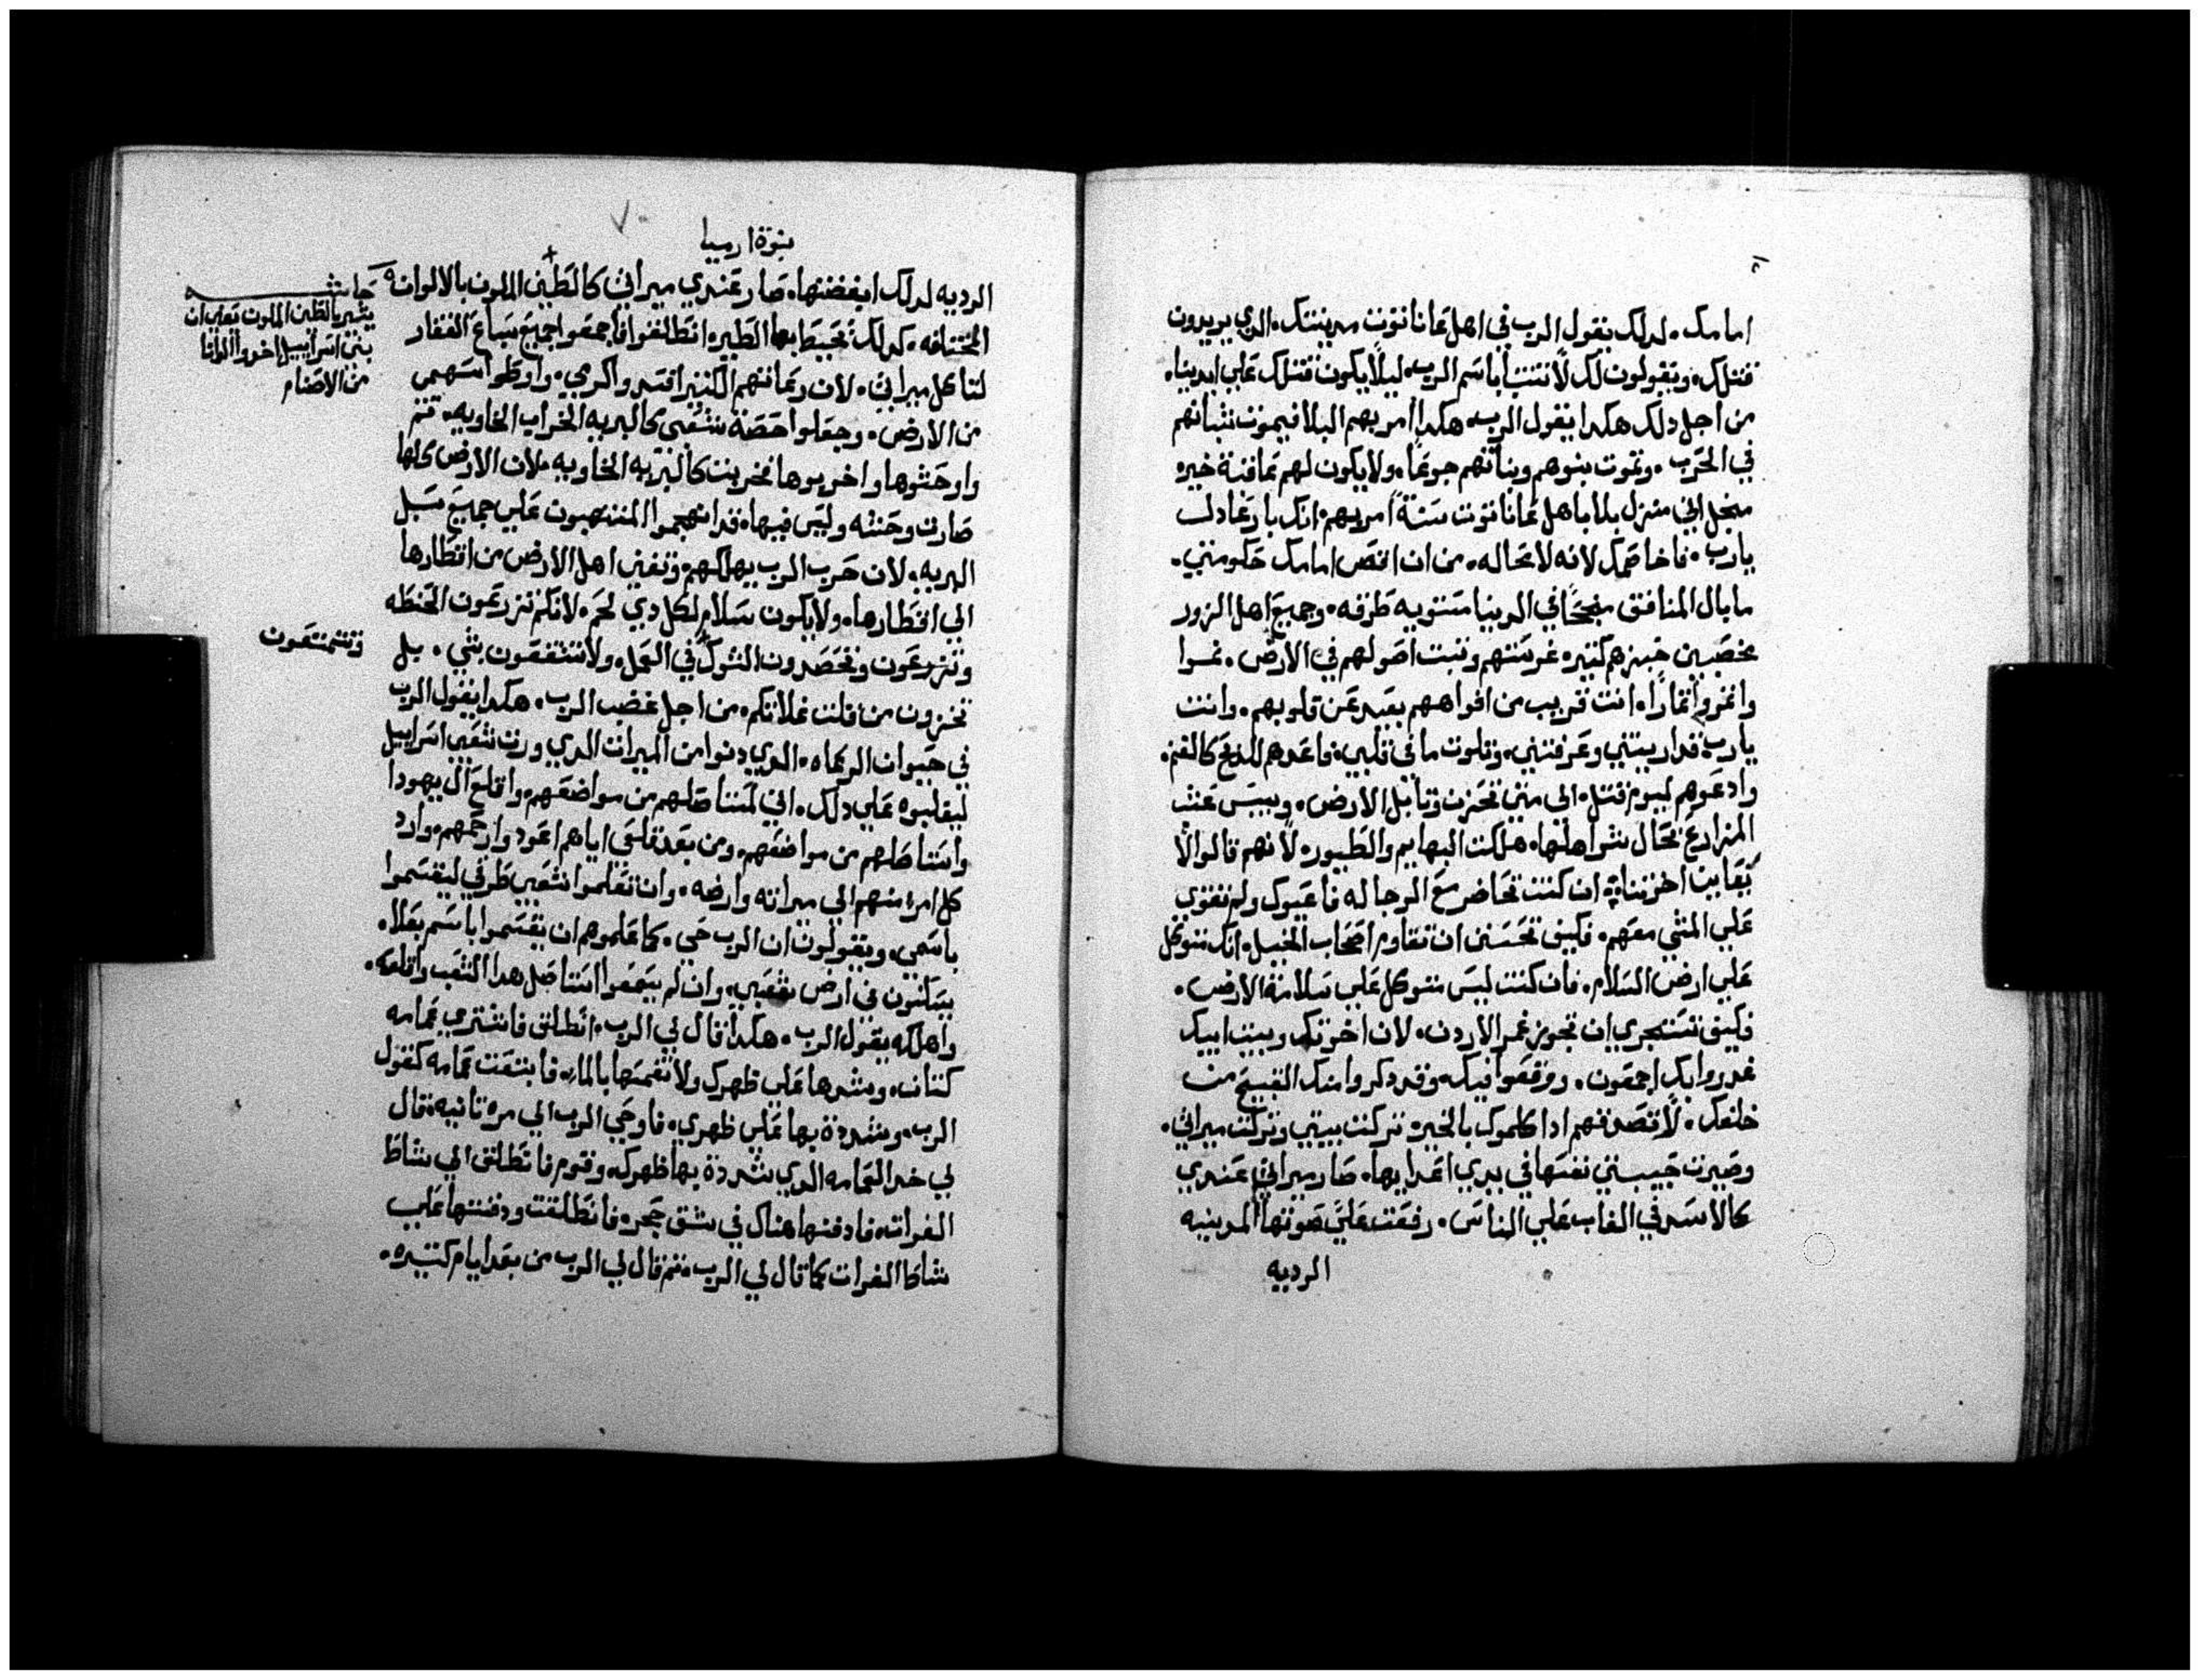 امامك. لدلك يقول الرب في اهل عاناتوت مدينتك. الدي يريدون
قتلك. ويقولون لك لا تتنبا باسم الرب. ليلا يكون قتلك علي ايدينا.
من اجل دلك هكدا يقول الرب. هكدا امر بهم البلا فيموت شبانهم
في الحرب. وتموت بنوهم وبناتهم جوعا. ولا يكون لهم عاقبة خيره
منجل اني منزل بلا باهل عاناتوت سنة امر بهم. انك بار عادل
يارب. فاخاصمك لانه لا محاله. من ان اقص امامك حكومتي.
ما بال المنافق منجحا في الدنيا مستويه طرقه. وجميع اهل الزور
مخصبين خيرهم كثيره غرستهم ونبت اصولهم في الارض. نموا
واثمروا ثمارا. انت قريب من افواههم بعيد عن قلوبهم. وانت
يارب قد اريتني وعرفتني. وتلوت ما في قلبي. واعدهم للدبح كالغنم.
وادعوهم ليوم قتل. الي متي تحزن وتابل الارض. وييبس عشب
المزارع بحال شر اهلها. هلكت البهايم والطيور. لانهم قالوا لا
يعاين اخرتنا. ان كنت تحاضر مع الرجاله فاعيوك ولم تقوي
علي المشي معهم. فكيف تحسن ان تقاوم اصحاب الخيل. انك تتوكل
علي ارض السلام. فان كنت ليس تتوكل علي سلامة الارض.
فكيف تستجري ان تجوز غمر الاردن. لان اخوتك وبيت ابيك
غدروا بك اجمعون. ووقعوا فيك. وقد دكروا منك القبيح من
خلفك. لا تصدقهم ادا كلموك بالخير. تركت بيتي وتركت ميراثي.
وصيرت حبيبتي نفسها في يدي اعدايها. صار ميراثي عندي
كالاسد في الغاب علي الناس. رفعت علي صوتها المدينيه
الرديه
نبوة ارميا
الرديه لدلك ابغضتها. صار عندي ميراثي كالطين الملون بالالوان
المختلفه. كدلك تحيط بها الطير. انطلقوا فاجمعوا جميع سباع القفار
لتاكل ميراثي. لان رعاتهم الكثير افسدوا كرمي. واوطوا سهمي
من الارض. وجعلوا حصة شعبي كالبريه الخراب الخاويه.
واوحشوها واخربوها فخربت كالبريه الخاويه. لان الارض كلها
صارت وحشه وليس فيها. قد انهجموا المنتهبون علي جميع سبل
البريه. لان حرب الرب يهلكهم. وتفني اهل الارض من اقطارها
الي اقطارها. ولا يكون سلام لكل دي لحم. لانكم تزرعون الحنطه
وتزرعون وتحصدون الشوك في العمل. ولا تنتفعون بشي. بل
تخزون من قلت غلاتكم. من اجل غضب الرب. هكدا يقول الرب
في حيوان الرعاه. الدي دنوا من الميراث الدي ورث شعبي اسراييل
ليقلبوه علي دلك. اني لمستاصلهم من مواضعهم. واقلع ال يهودا
واستاصلهم من مواضعهم. ومن بعد قلعي اياهم اعود وارحمهم. وارد
كل امرا منهم الي ميراثه وارضه. وان تعلموا شعبي طرقي ليقسموا
باسمي. ويقولون ان الرب حي. كما علموهم ان يقسموا باسم بعلا.
يسكنون في ارض شعبي. وان لم يسمعوا استاصل هدا الشعب واقلعه.
واهلكه يقول الرب. هكدا قال لي الرب. انطلق فاشتري عمامه
كتان. وشدها علي ظهرك ولا تغمسها بالما. فابتعت عمامه كقول
الرب. وشددة بها علي ظهري. فاوحي الرب الي مره تانيه. قال
لي خد العمامه الدي شددة بها ظهرك. وقوم فانطلق الي شاطا
الفرات. فادفنها هناك في شق حجر. فانطلقت ودفنتها علي
شاطا الفرات كما قال لي الرب. تم قال لي الرب من بعد ايام كتيره.
حاشيه
يشير بالطين الملون يعني ان
بني اسراييل اخدوا الوانا
من الاصنام
وتتمتعون